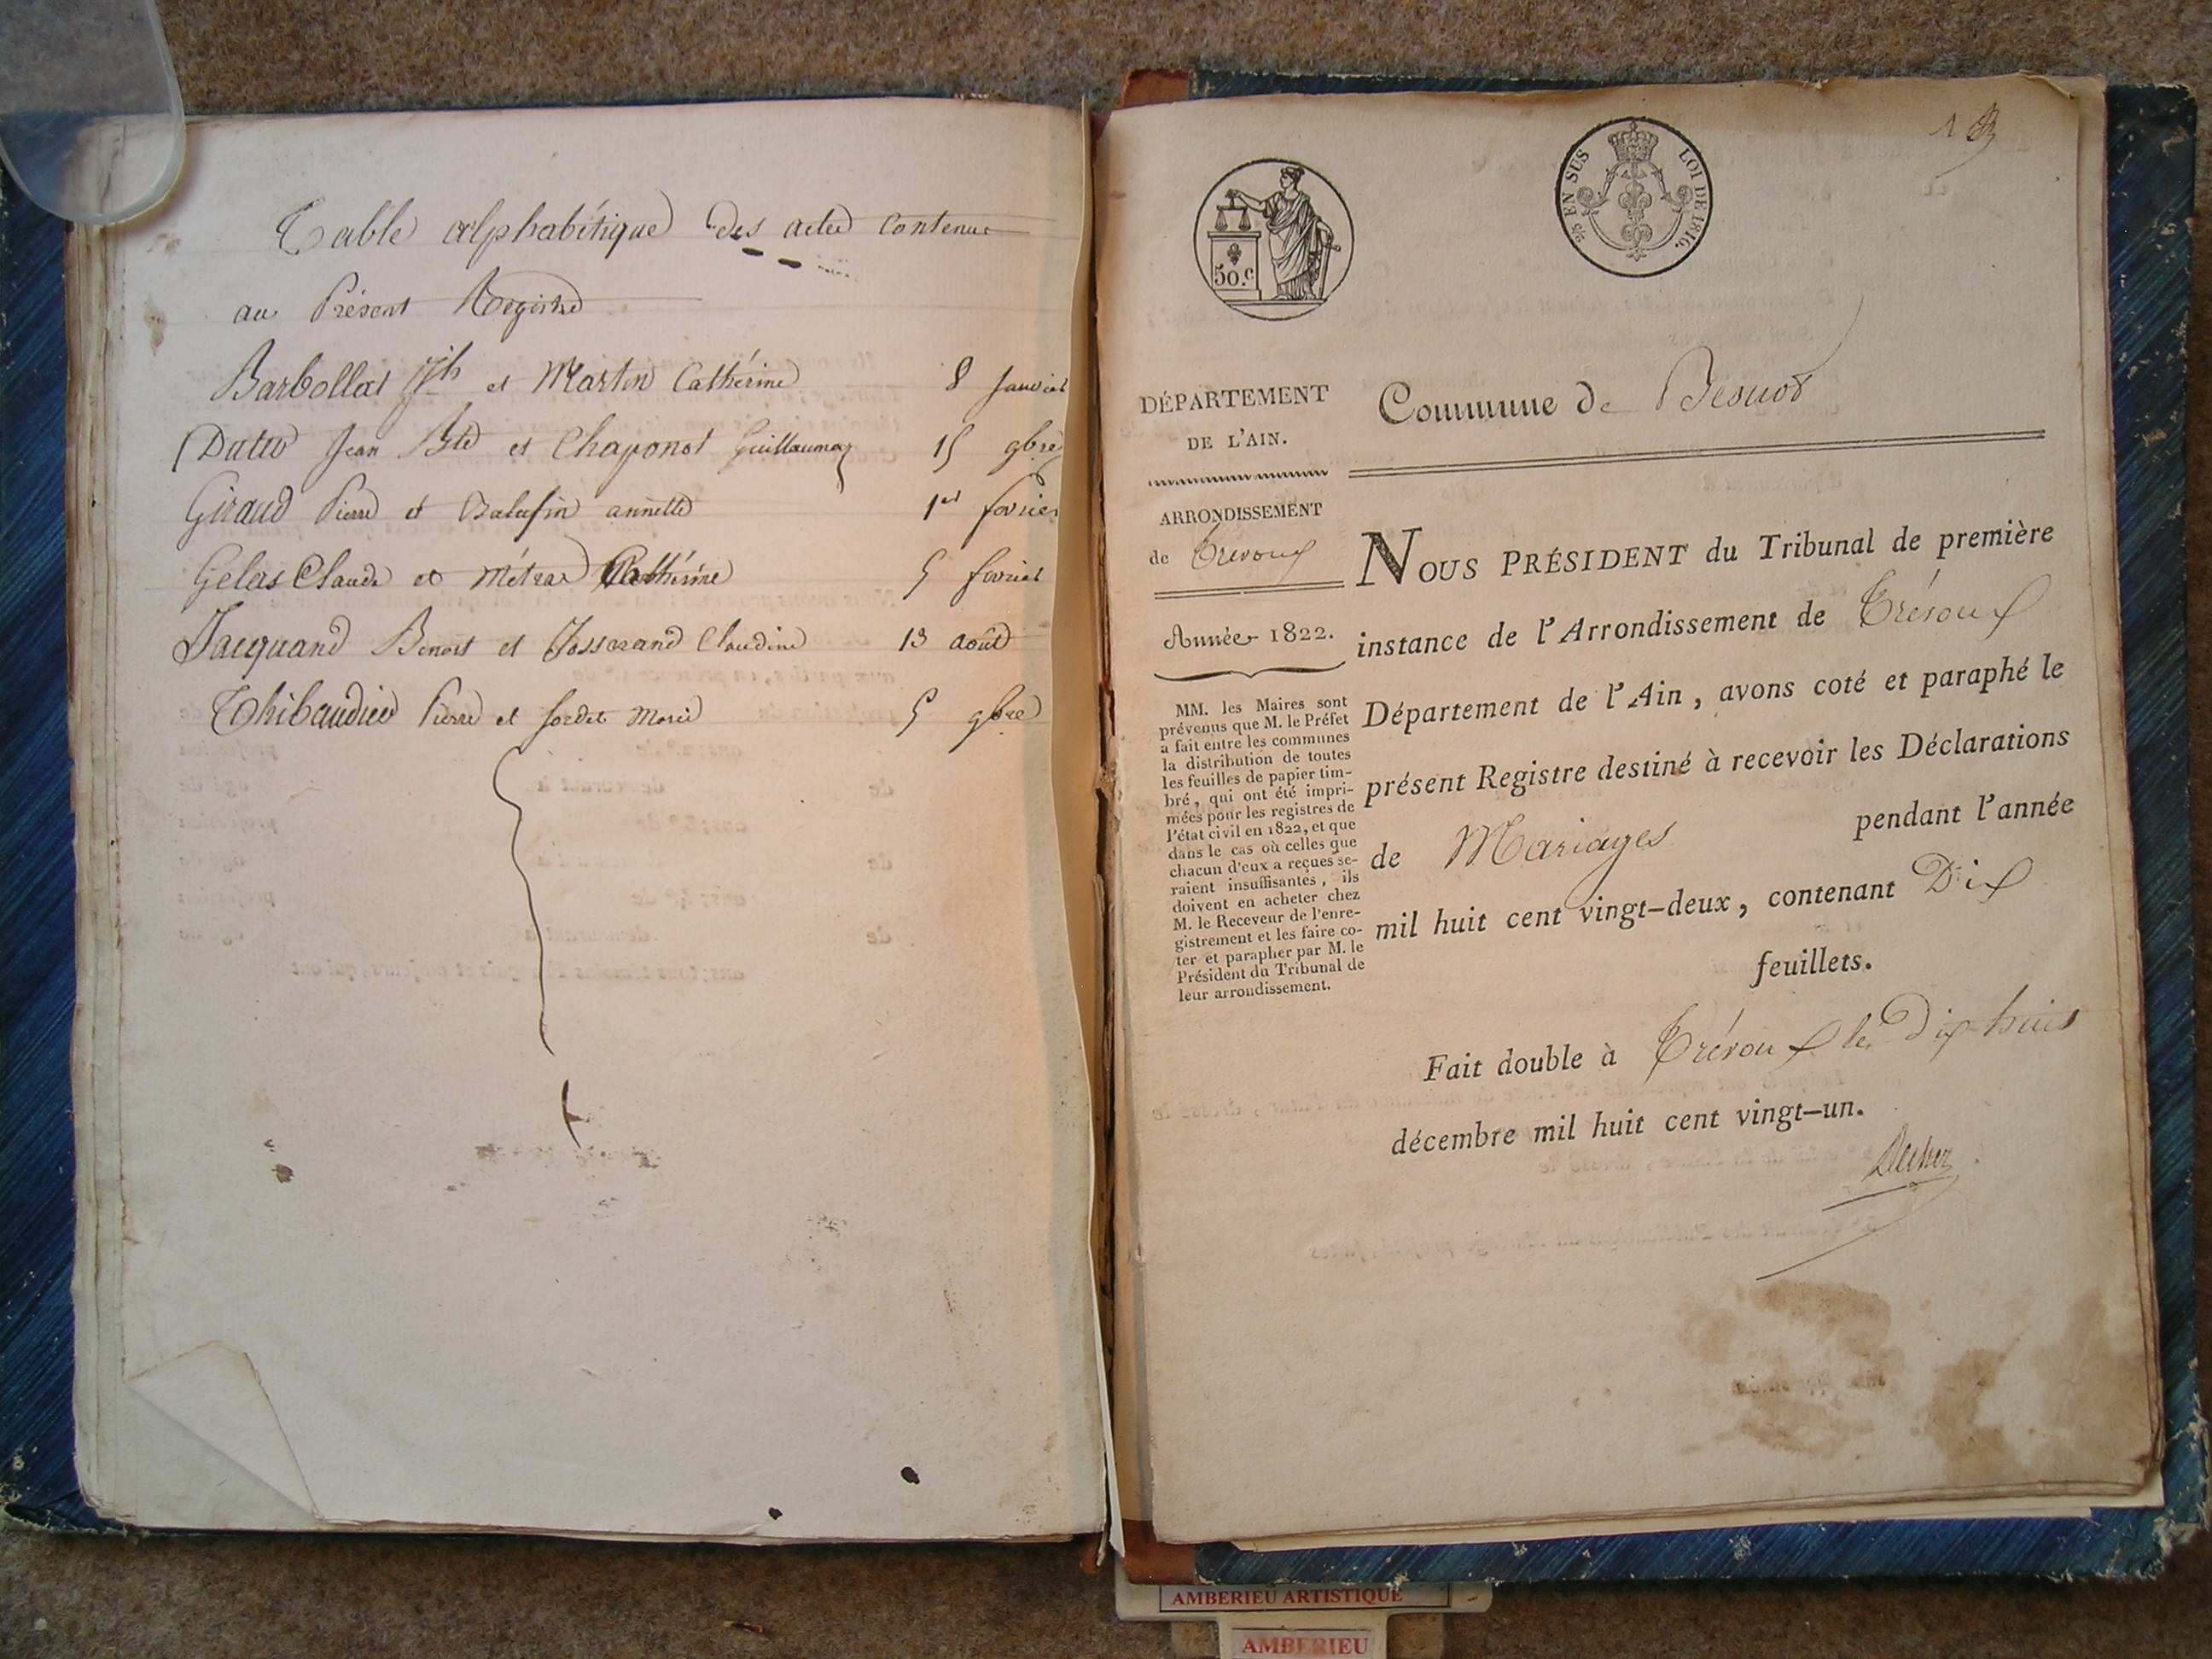 Table alphabétique des actes contenus
au Présent Registre
Barbollat Jph et Martin Catherine 8 Janvier
Jean Bte et Chaponot Guillaumaz 15 9bre
Giraud Pierre et annette 1er fevrier
Gelas Claude et Métras Catherine 5 fevrier
Jacquand Benoit et Josserand Claudine 13 août
Thibaudier Pierre et Sordet Marie 5 9bre
1
50.c
EN SUS LOI DE 1816.
DÉPARTEMENT
DE L'AIN.
ARRONDISSEMENT
de Trevoux
Année 1822.
MM. les Maires sont
prévenus que M. le Préfet
a fait entre les communes
la distribution de toutes
les feuilles de papier tim-
bré, qui ont été impri-
mées pour les registres de
l'état civil en 1822, et que
dans le cas où celles que
chacun d'eux a reçues se-
raient insuffisantes, ils
doivent en acheter chez
M. le Receveur de l'enre-
gistrement et les faire co-
ter et parapher par M. le
Président du Tribunal de
leur arrondissement.
Commune de
NOUS PRÉSIDENT du Tribunal de première
instance de l'Arrondissement de Trévoux
Département de l'Ain, avons coté et paraphé le
présent Registre destiné à recevoir les Déclarations
de Mariages pendant l'année
mil huit cent vingt-deux, contenant Dix
feuillets.
Fait double à Trévoux le Dix huit
décembre mil huit cent vingt-un.
AMBERIEU ARTISTIQUE
AMBERIEU